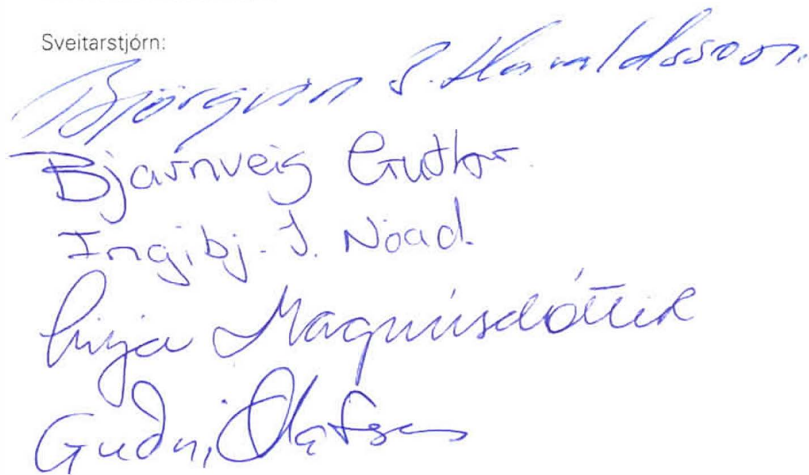 Sveitarstjórn:
Björgvin S. Haraldsson.
Bjarnveig Guðbr.
Ingibj. J. Nóad.
Lilja Magnúsdóttir
Guðni Ólafsson